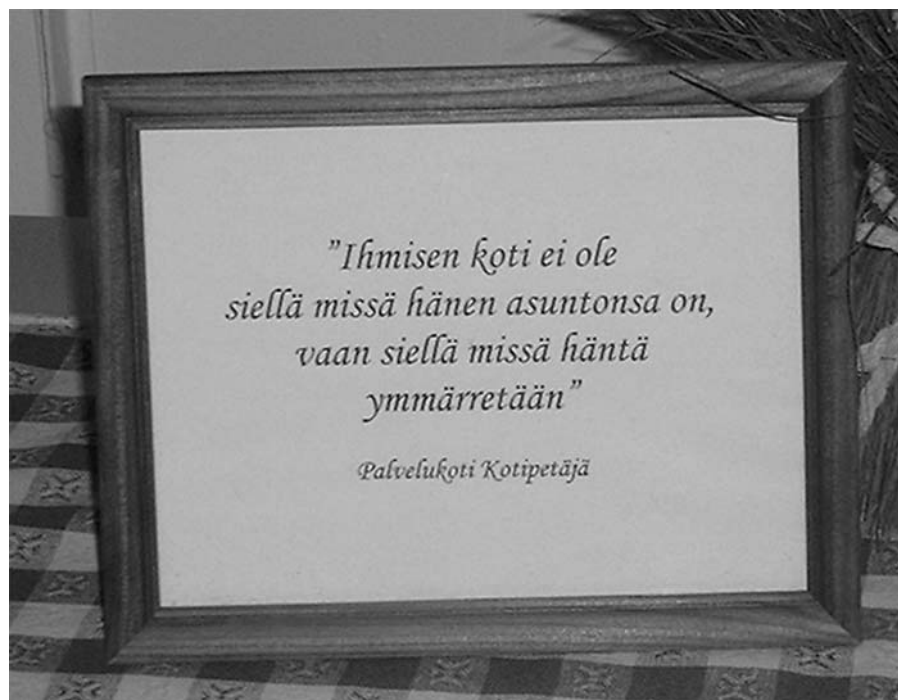 ”Ihmisen koti ei ole
siellä missä hänen asuntonsa on,
vaan siellä missä häntä
ymmärretään”
Palvelukoti Kotipetäjä